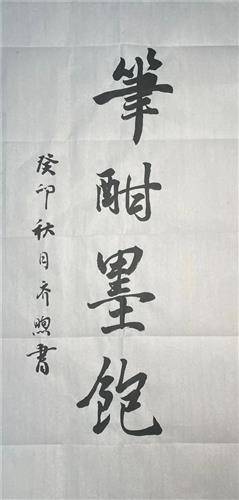 筆酣墨飽
癸卯秋月齐煦書